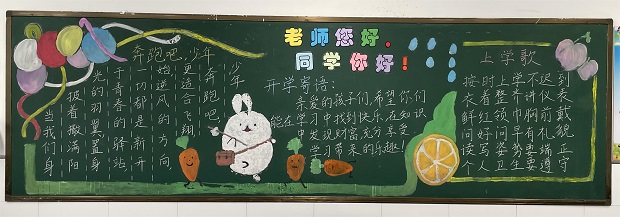 奔跑吧,少年
当我们身
披着撒满阳
光的羽翼置身
于青春的驿站
一切都是新开
始逆风的方向,
更适合飞翔
奔跑吧,
少年
老师您好,
同学你好!
开学寄语:
亲爱的孩子们,希望你们
能在学习中找到快乐 知识
中发现财富充分享受
学习带来的乐趣!
上学歌
按时上学不迟到
衣着整齐讲仪表
鲜红领巾胸前戴
问好问早有礼貌
读写姿势要端正
个人卫生要遵守